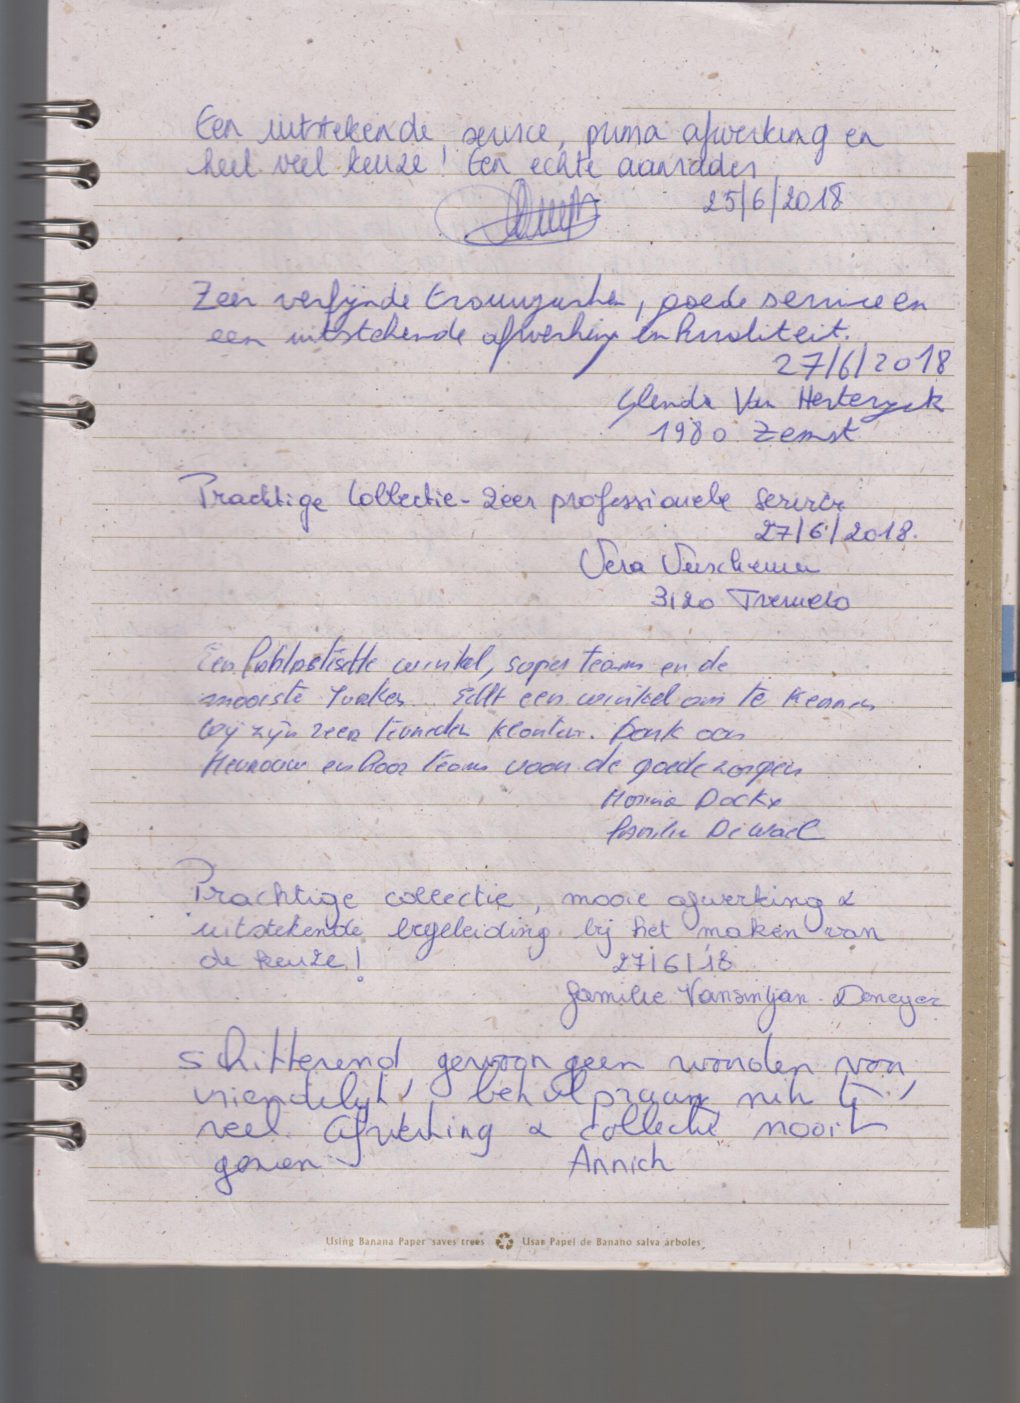 Een uitstekende service, prima afwerking en
heel veel keuze! Een echte aanrader
25/6/2018
Zeer verfijnde trouwjurken, goede service en
een uitstekende afwerking en kwaliteit.
27/6/2018
Glenda Van
1980 Zemst
Prachtige Collectie - Zeer professionele service
27/6/2018.
Vera
3120 Tremelo
Een fantastische winkel, super team en de
mooiste jurken. Echt een winkel om te kennen
Wij zijn zeer tevreden klanten. Dank aan
Mevrouw en haar team voor de goede zorgen
Dockx
familie De Wael
Prachtige collectie, mooie afwerking &
uitstekende begeleiding bij het maken van
de keuze!
27/6/18
familie Deneyer
Schitterend gewoon geen woorden voor,
vriendelijk, behulpzaam
veel. Afwerking & collectie mooi
gezien
Annich
Using Banana Paper saves trees Usar Papel de Banano salva árboles